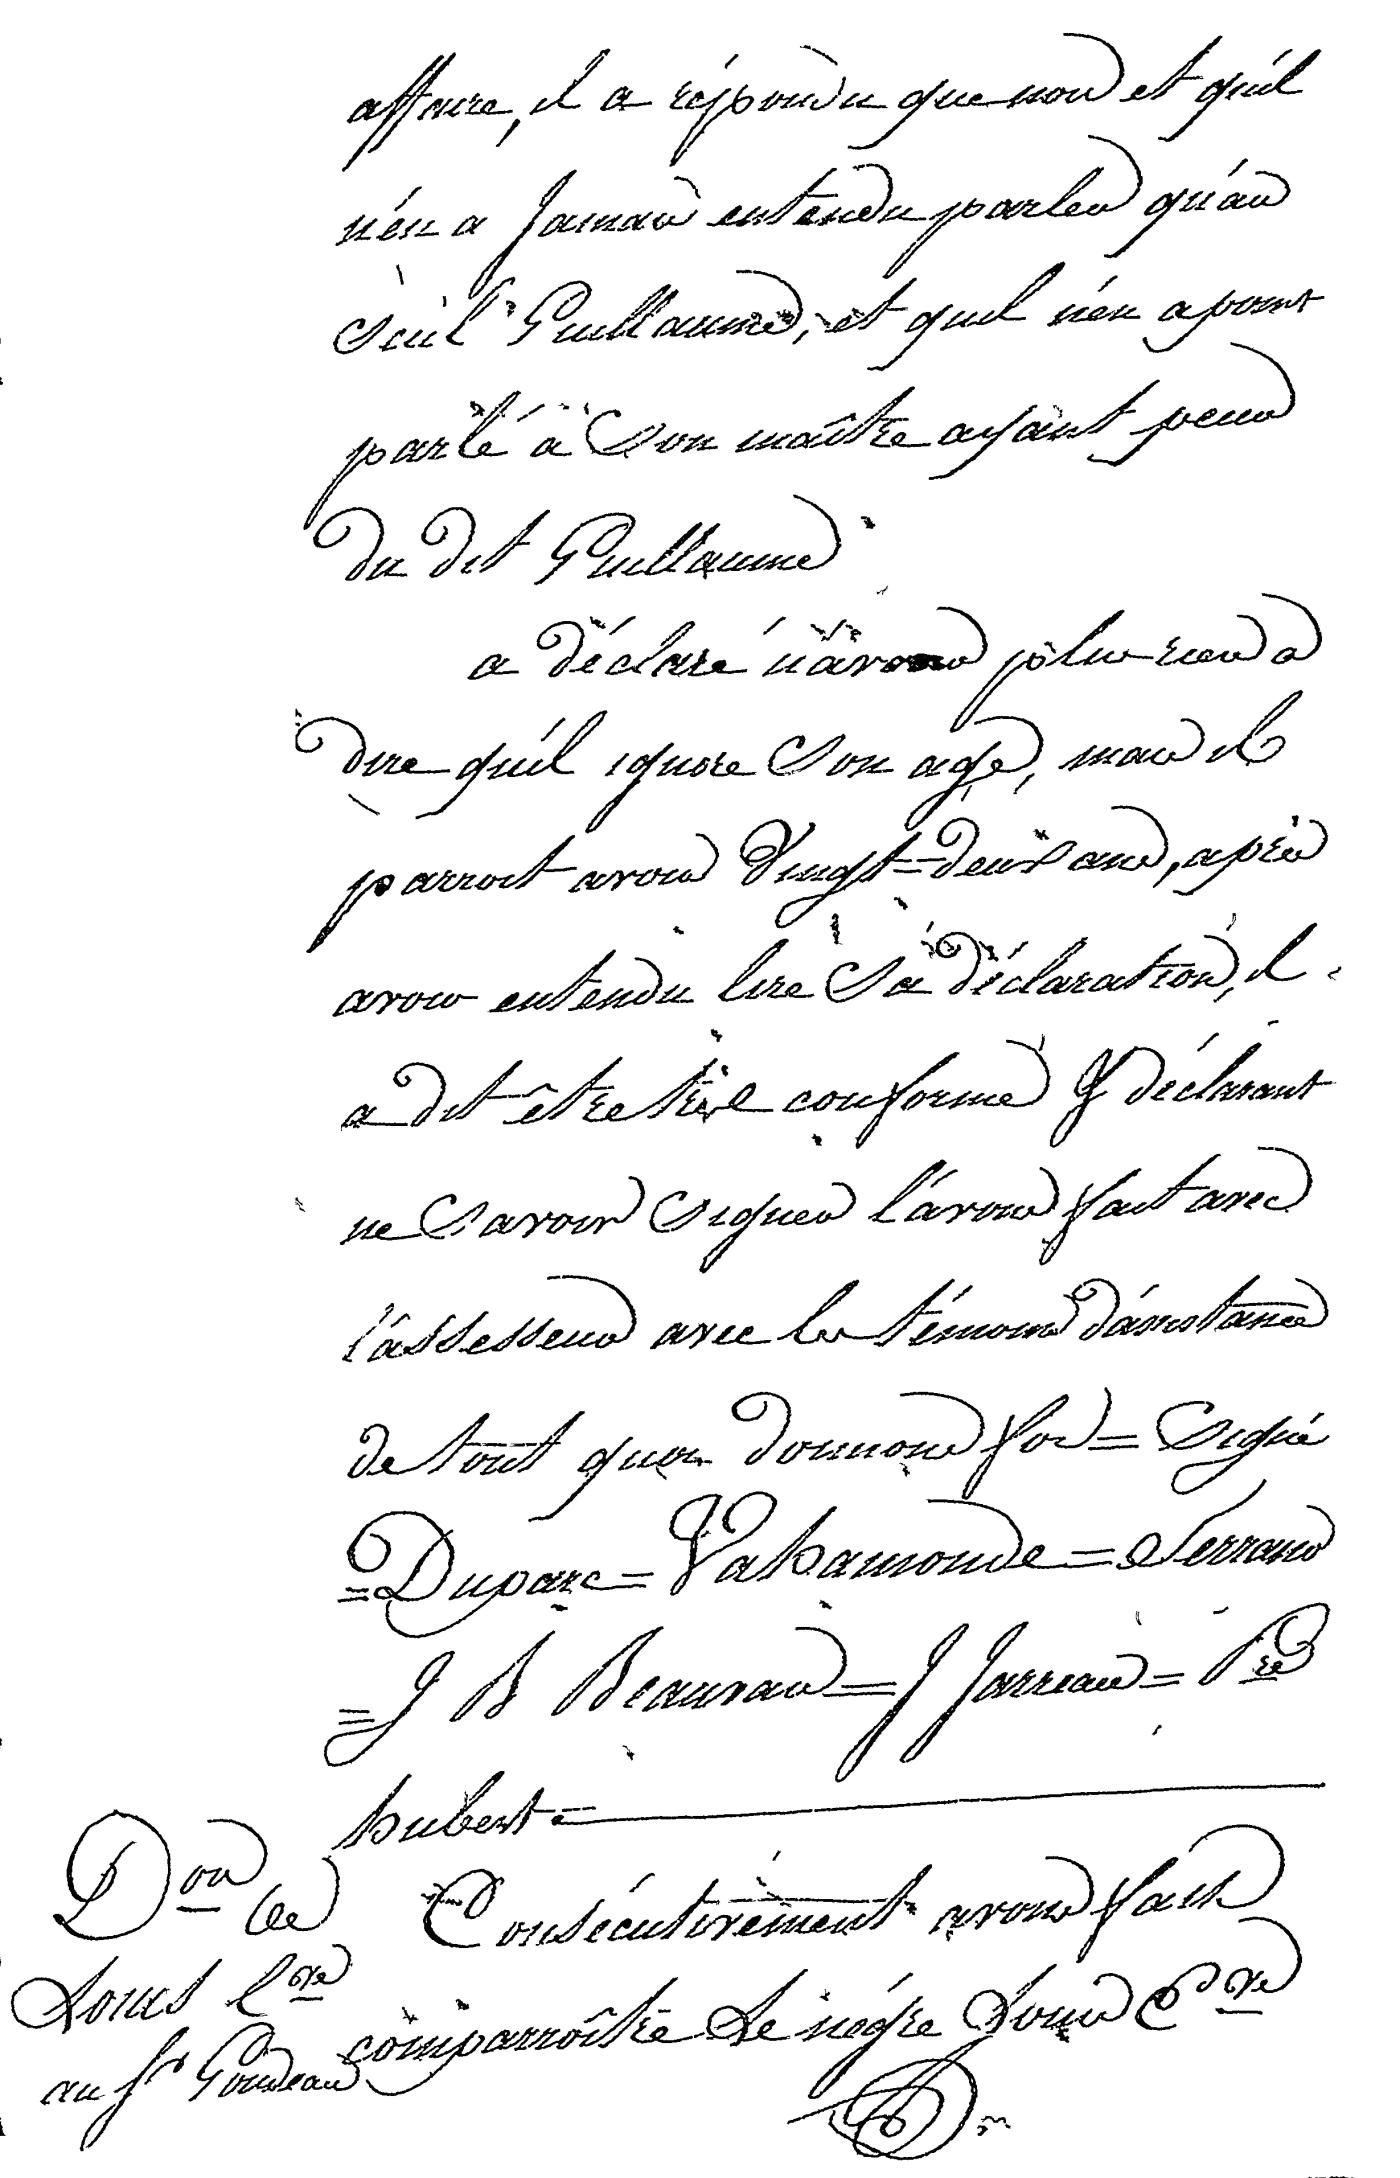 affaire, il a répondu que non et qu'il
n'en a Jamais entendu parler qu'au
Seul Guillaume, et quil n'en a point
parlé à Son maître ayant peur
du dit Guillaume
a déclaré n'avoir plus rien a
dire qu'il ignore Son age, mais il
parroit avoir Vingt=deux ans, après
avoir entendu lire Sa déclaration, il
a dit être très conforme & déclarant
ne Savoir Signer l'avons fait avec
l'assesseur avec les témoins d'assistance
de tout quoi donnons foi = Signé
=Duparc= Vahamonde = Serrano
= J B Beauvais = J Jarreau = Pre
hubert =
Don de
Louis Cve
au Sr Goudeau
Consécutivement avons fait
comparroître Le négre Louis Cve